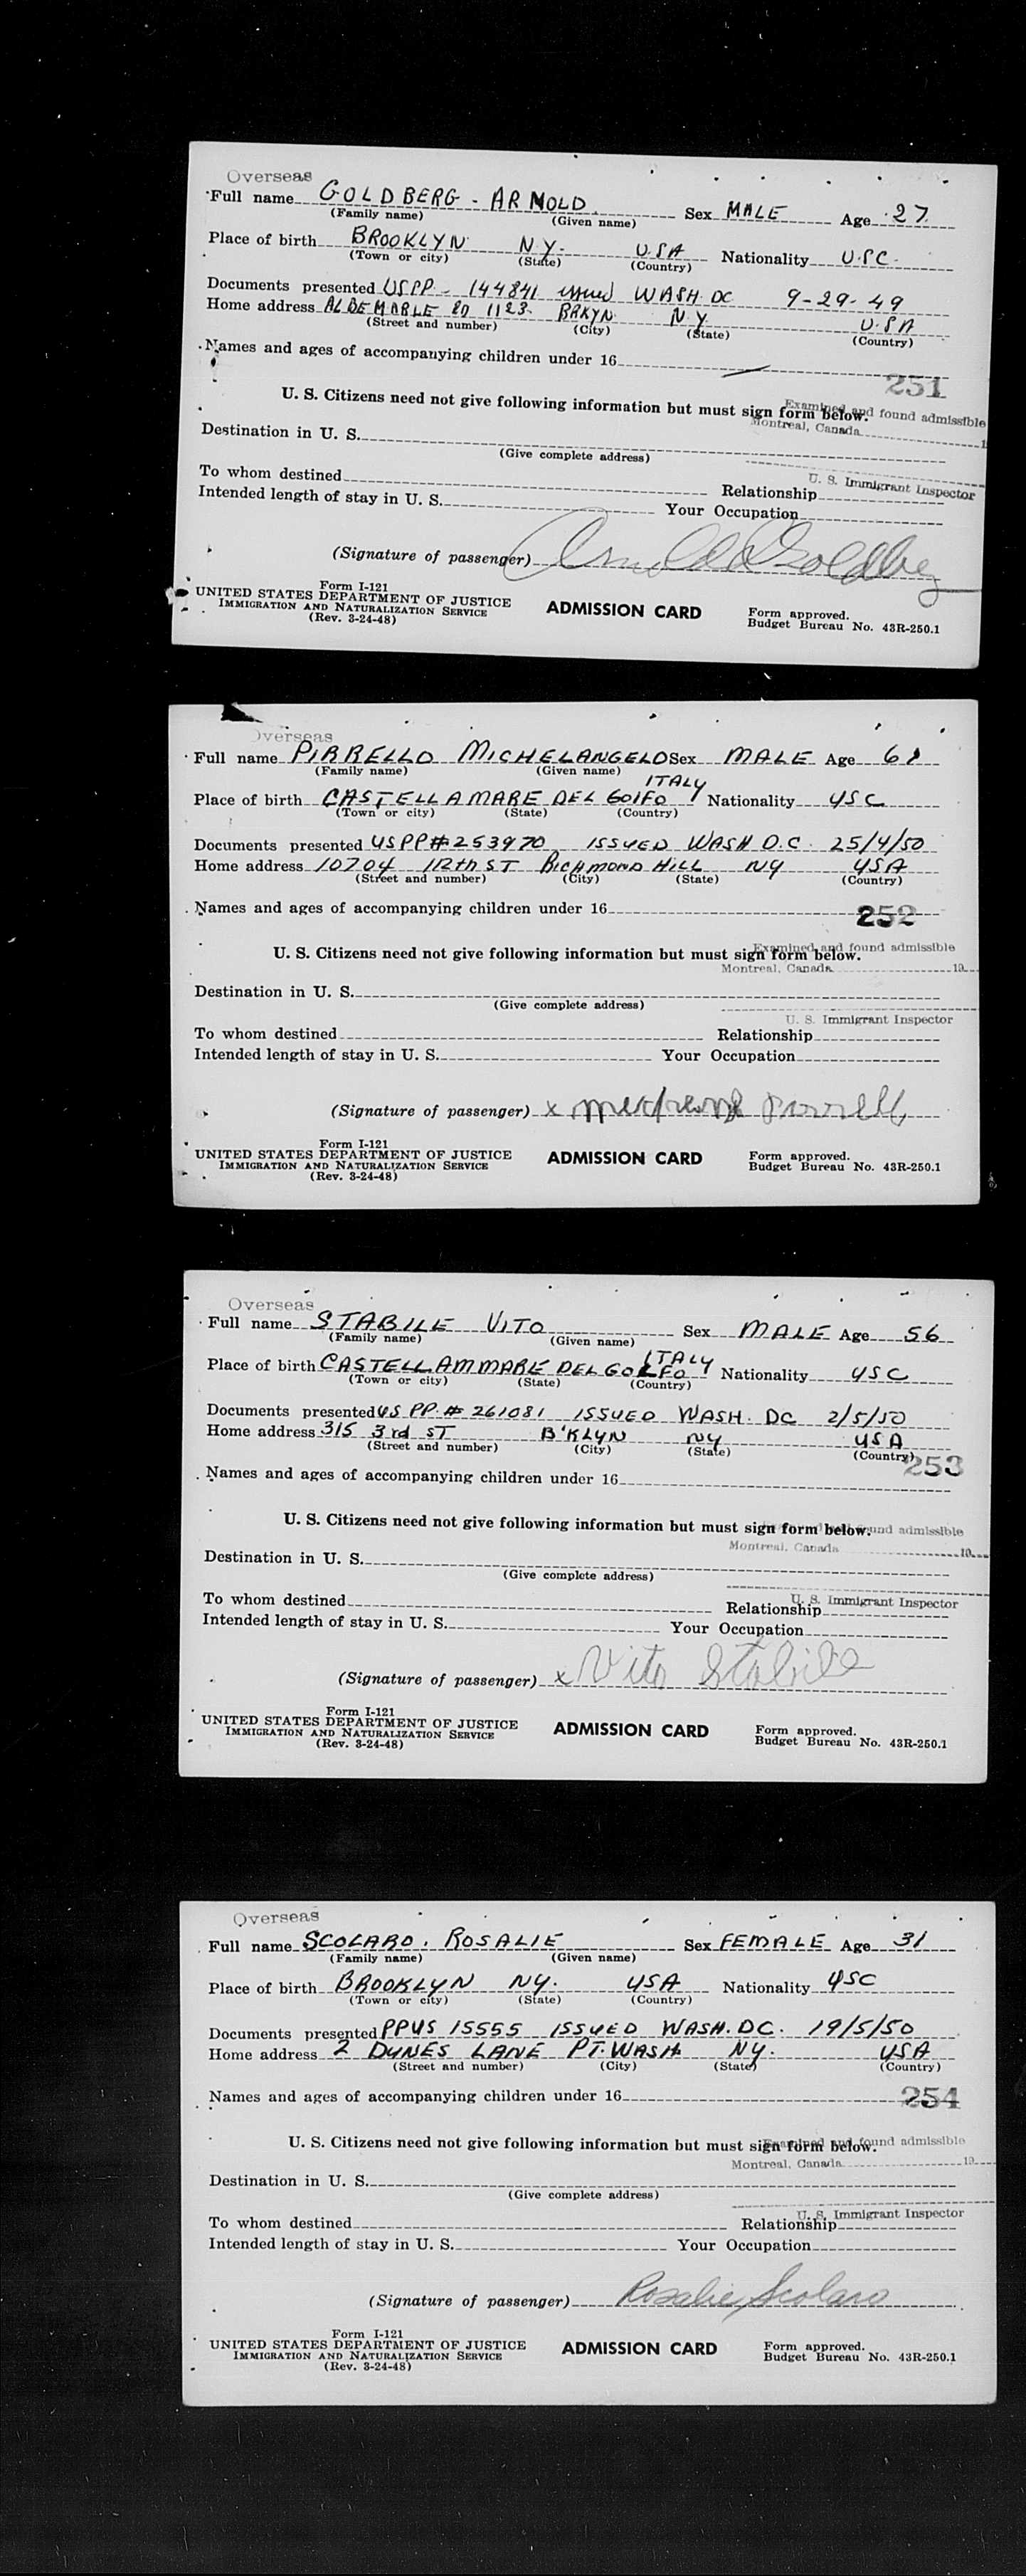 Overseas
Full name GOLDBERG - ARNOLD Sex MALE Age 27
(Family name) (Given name)
Place of birth BROOKLYN N.Y. USA Nationality U.S.C.
(Town or city) (State) (Country)
Documents presented USPP - 144841 issued WASH. DC 9-29-49
Home address 1123 BRKYN N.Y U.S.A
(Street and number) (City) (State) (Country)
Names and ages of accompanying children under 16
251
U. S. Citizens need not give following information but must sign form below.
Examined and found admissible
Montreal, Canada
Destination in U. S.
(Give complete address)
U. S. Immigrant Inspector
To whom destined Relationship
Intended length of stay in U. S. Your Occupation
(Signature of passenger) Arnold Goldberg
Form I-121
UNITED STATES DEPARTMENT OF JUSTICE
IMMIGRATION AND NATURALIZATION SERVICE
(Rev. 3-24-48)
ADMISSION CARD
Form approved.
Budget Bureau No. 43R-250.1
Overseas
Full name PIRRELLO MICHELANGELO Sex MALE Age 61
(Family name) (Given name)
Place of birth CASTELLAMARE DEL GOLFO ITALY Nationality USC
(Town or city) (State) (Country)
Documents presented USPP# 253970 ISSUED WASH D.C. 25/4/50
Home address 10704 112th ST RICHMOND HILL NY USA
(Street and number) (City) (State) (Country)
Names and ages of accompanying children under 16
252
U. S. Citizens need not give following information but must sign form below.
Examined and found admissible
Montreal, Canada 19
Destination in U. S.
(Give complete address)
U. S. Immigrant Inspector
To whom destined Relationship
Intended length of stay in U. S. Your Occupation
(Signature of passenger) x
Form I-121
UNITED STATES DEPARTMENT OF JUSTICE
IMMIGRATION AND NATURALIZATION SERVICE
(Rev. 3-24-48)
ADMISSION CARD
Form approved.
Budget Bureau No. 43R-250.1
Overseas
Full name STABILE VITO Sex MALE Age 56
(Family name) (Given name)
Place of birth CASTELLAMMARE DEL GOLFO ITALY Nationality USC
(Town or city) (State) (Country)
Documents presented US PP. # 261081 ISSUED WASH. DC 2/5/50
Home address 315 3rd ST B'KLYN NY USA
(Street and number) (City) (State) (Country)
253
Names and ages of accompanying children under 16
U. S. Citizens need not give following information but must sign form below.
found admissible
Montreal, Canada 19
Destination in U. S.
(Give complete address)
U. S. Immigrant Inspector
To whom destined Relationship
Intended length of stay in U. S. Your Occupation
(Signature of passenger) x Vito Stabile
Form I-121
UNITED STATES DEPARTMENT OF JUSTICE
IMMIGRATION AND NATURALIZATION SERVICE
(Rev. 3-24-48)
ADMISSION CARD
Form approved.
Budget Bureau No. 43R-250.1
Overseas
Full name SCOLARO. ROSALIE Sex FEMALE Age 31
(Family name) (Given name)
Place of birth BROOKLYN NY. USA Nationality USC
(Town or city) (State) (Country)
Documents presented PPUS 15555 ISSUED WASH. DC. 19/5/50
Home address 2 DUNES LANE PT. WASH NY. USA
(Street and number) (City) (State) (Country)
Names and ages of accompanying children under 16
254
U. S. Citizens need not give following information but must sign form below.
Examined and found admissible
Montreal, Canada 19
Destination in U. S.
(Give complete address)
U. S. Immigrant Inspector
To whom destined Relationship
Intended length of stay in U. S. Your Occupation
(Signature of passenger) Rosalie Scolaro
Form I-121
UNITED STATES DEPARTMENT OF JUSTICE
IMMIGRATION AND NATURALIZATION SERVICE
(Rev. 3-24-48)
ADMISSION CARD
Form approved.
Budget Bureau No. 43R-250.1